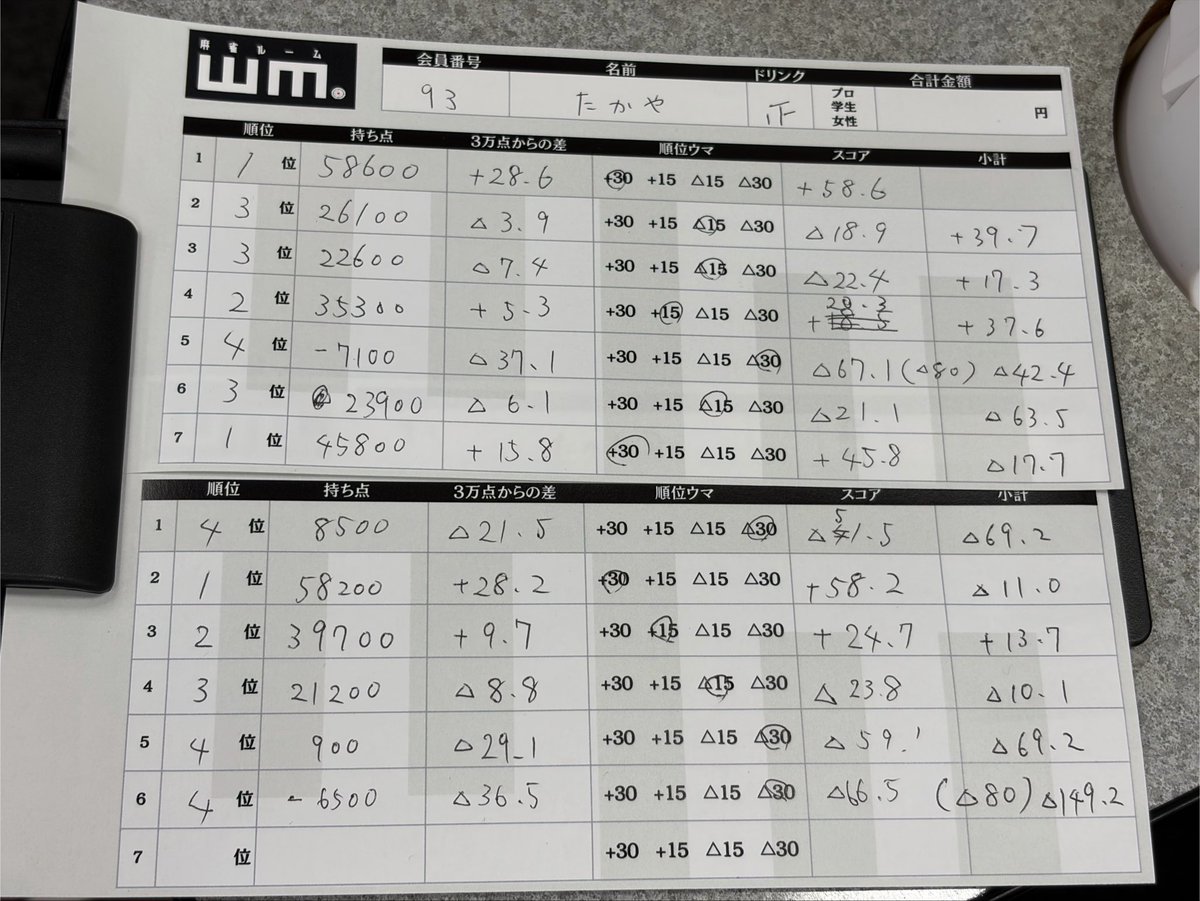 麻雀ルーム
wm.
会員番号 名前 ドリンク 合計金額
93 たかや 正 プロ 学生 女性 円
順位 持ち点 3万点からの差 順位ウマ スコア 小計
1 1 位 58600 +28.6 +30 +15 △15 △30 +58.6
2 3 位 26100 △3.9 +30 +15 △15 △30 △18.9 +39.7
3 3 位 22600 △7.4 +30 +15 △15 △30 △22.4 +17.3
4 2 位 35300 +5.3 +30 +15 △15 △30 +20.3 +37.6
5 4 位 -7100 △37.1 +30 +15 △15 △30 △67.1(△80) △42.4
6 3 位 23900 △6.1 +30 +15 △15 △30 △21.1 △63.5
7 1 位 45800 +15.8 +30 +15 △15 △30 +45.8 △17.7
順位 持ち点 3万点からの差 順位ウマ スコア 小計
1 4 位 8500 △21.5 +30 +15 △15 △30 △51.5 △69.2
2 1 位 58200 +28.2 +30 +15 △15 △30 +58.2 △11.0
3 2 位 39700 +9.7 +30 +15 △15 △30 +24.7 +13.7
4 3 位 21200 △8.8 +30 +15 △15 △30 △23.8 △10.1
5 4 位 900 △29.1 +30 +15 △15 △30 △59.1 △69.2
6 4 位 -6500 △36.5 +30 +15 △15 △30 △66.5 (△80) △149.2
7 位 +30 +15 △15 △30